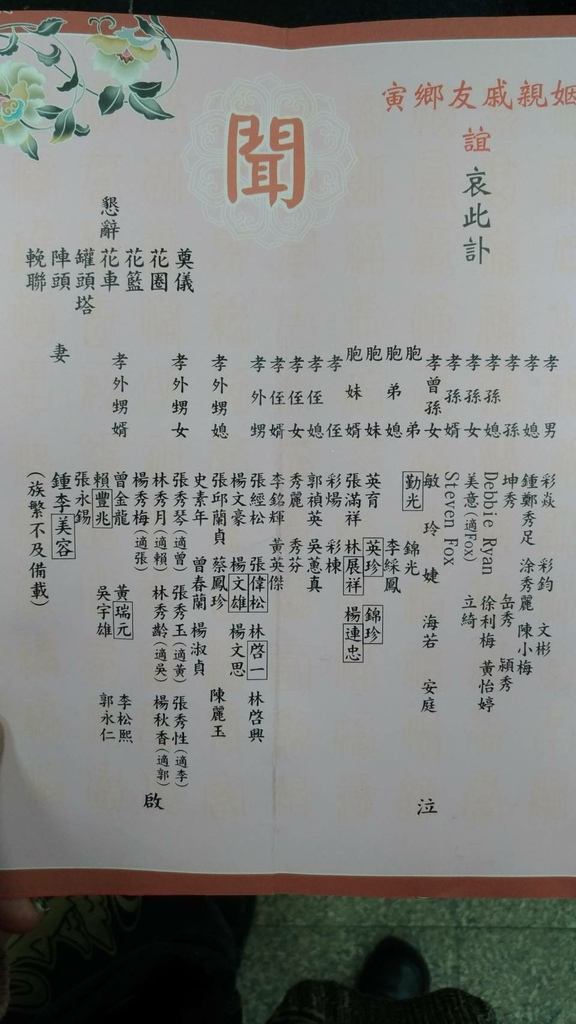 姻親戚友鄉寅
誼
哀此訃
聞
孝男 彩煥 彩鈞 文彬
孝媳 鍾鄭秀足 涂秀麗 陳小梅
孝孫 坤秀 岳秀 穎秀
孝孫媳 Debbie Ryan 徐利梅 黃怡婷
孝孫女 美意(適Fox) 立綺
孝孫婿 Steven Fox
孝曾孫女 敏玲 婕 海若 安庭
胞弟 勤光 錦光
胞弟媳 李綵鳳
胞妹 英育 英珍 錦珍
胞妹婿 張滿祥 林展祥 楊連忠
孝侄 彩煬 彩棟
孝侄媳 郭禎英 吳蕙真
孝侄女 秀麗 秀芬
孝侄婿 李銘輝 黃英傑
孝外甥 張經松 張偉松 林啓一 林啓興
楊文豪 楊文雄 楊文思
孝外甥媳 張邱蘭貞 蔡鳳珍 陳麗玉
史素年 曾春蘭 楊淑貞
孝外甥女 張秀琴(適曾) 張秀玉(適黃) 張秀性(適李)
林秀月(適賴) 林秀齡(適吳) 楊秋香(適郭)
楊秀梅(適張)
孝外甥婿 曾金龍 黃瑞元 李松熙
賴豐兆 吳宇雄 郭永仁
張永錫
妻 鍾李美容
(族繁不及備載)
泣
啟
懇辭
奠儀
花圈
花籃
花車
罐頭塔
陣頭
輓聯